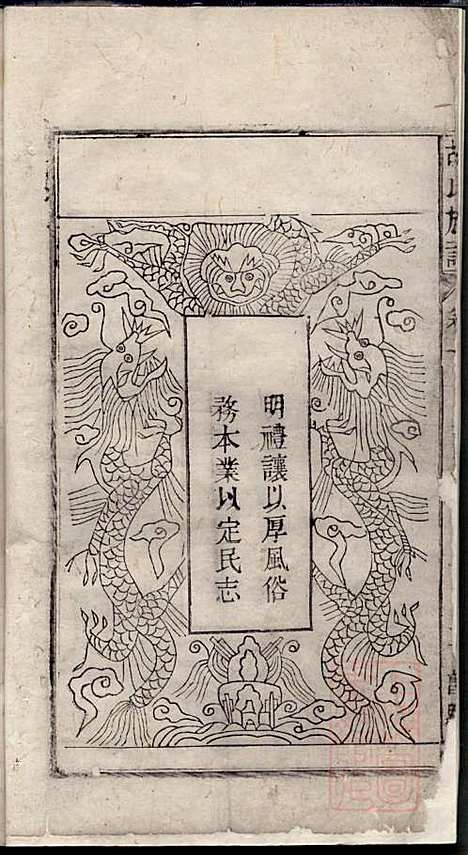 明禮讓以厚風俗
務本業以定民志